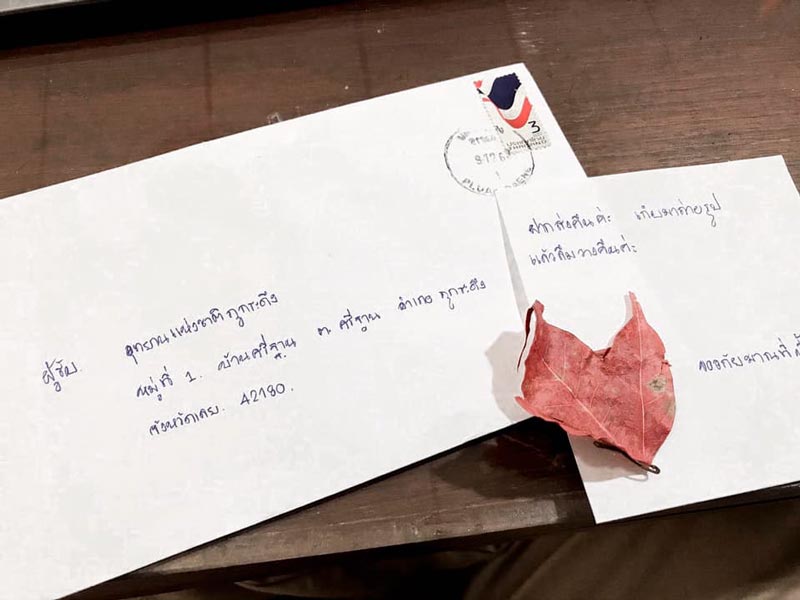 3
ผู้รับ. อุทยานแห่งชาติภูกระดึง
หมู่ที่ 1. บ้านศรีฐาน ต. ศรีฐาน อำเภอ ภูกระดึง
จังหวัดเลย. 42180.
ฝากส่งคืนค่ะ เก็บมาถ่ายรูป
แล้วลืมวางคืนค่ะ
ขออภัยมาณที่